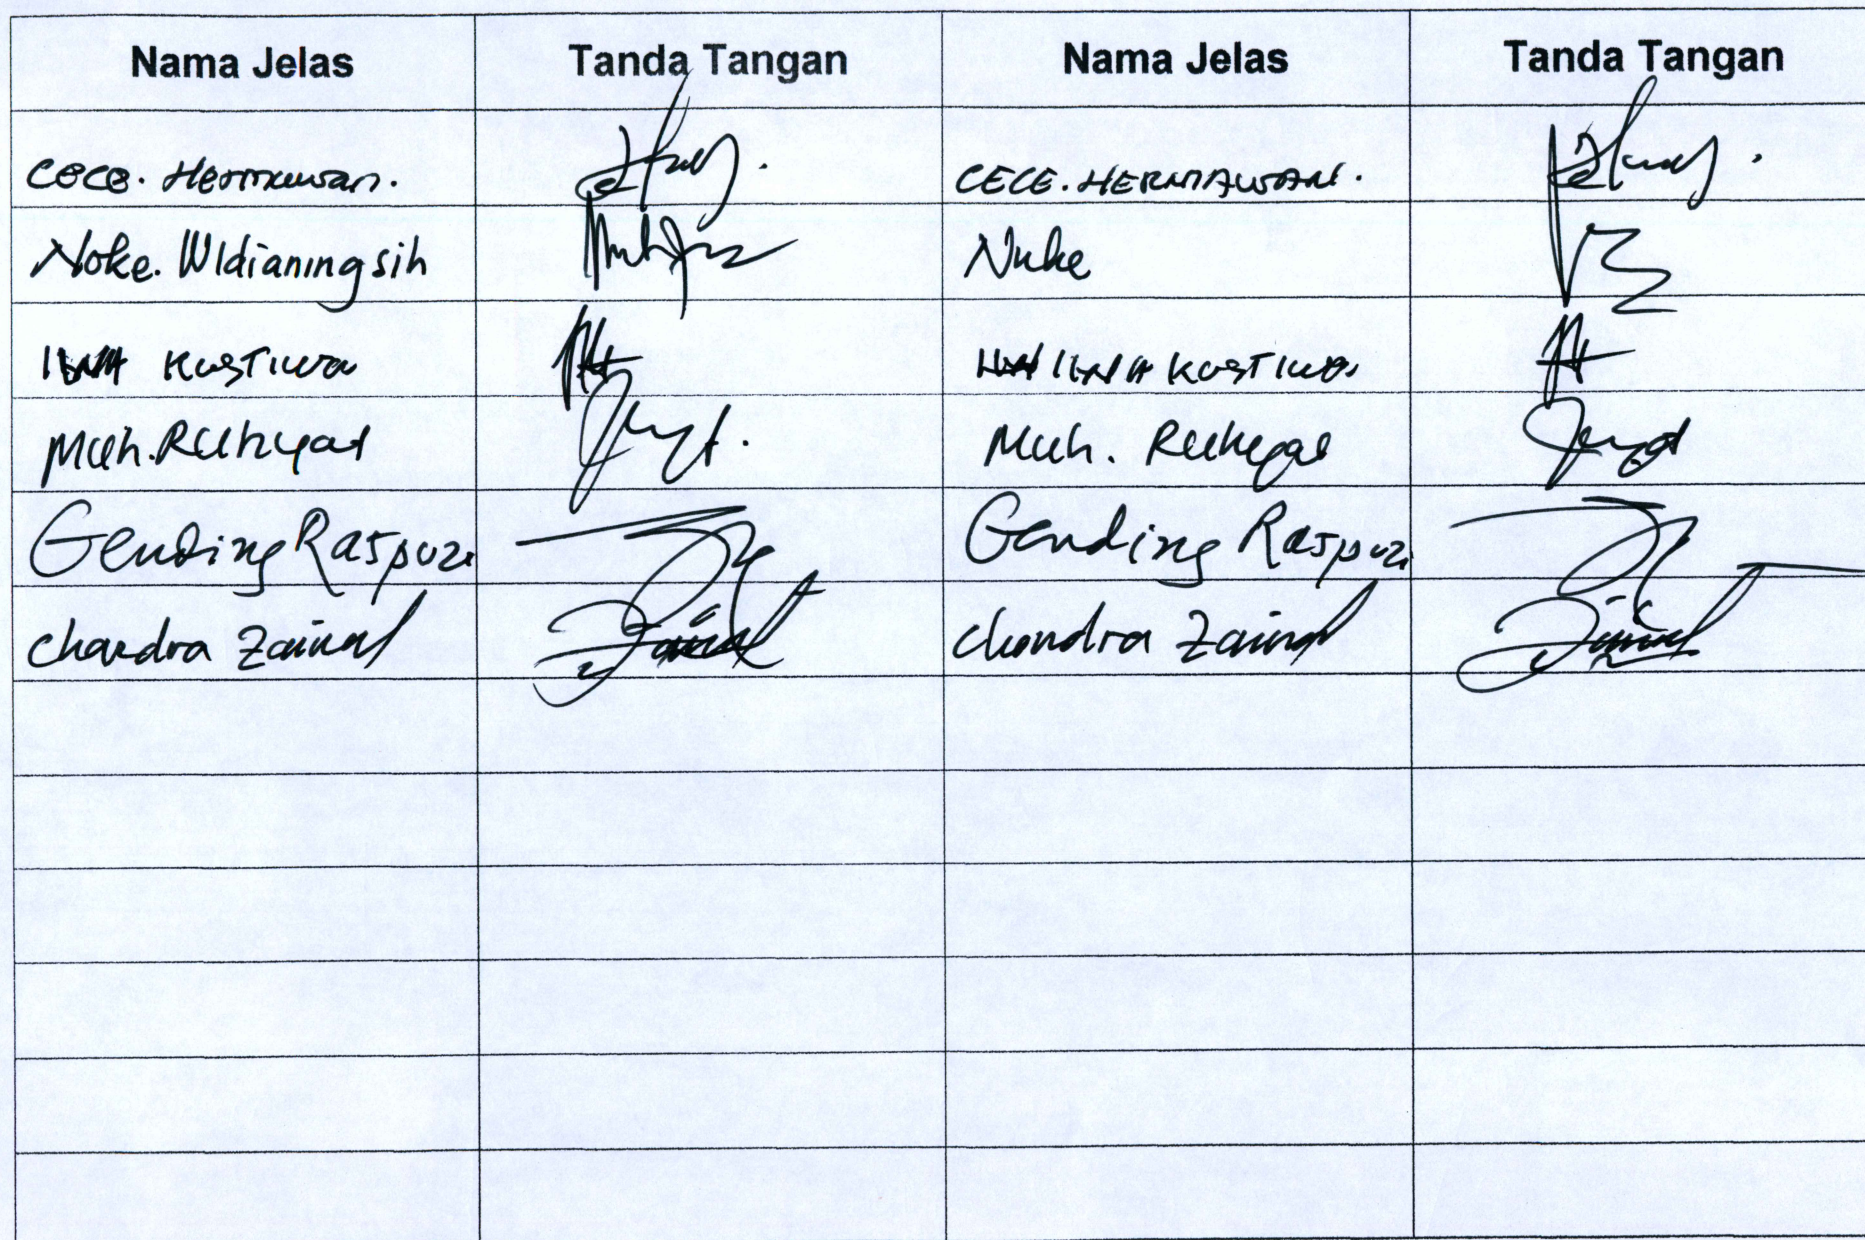 Nama Jelas Tanda Tangan Nama Jelas Tanda Tangan
Cece. Hermawan. CECE. HERMAWAN.
Noke. Widianingsih Nuke
Kustiwa Kustiwa
Muh. Ruhyat Muh. Ruhyat
Gending Raspuzi Gending Raspuzi
Chandra Zainal Chandra Zainal